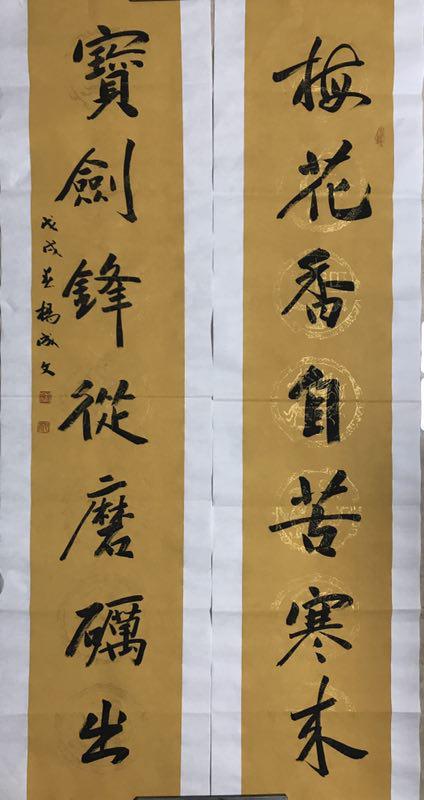 梅花香自苦寒来
寶劍鋒從磨礪出
戊戌春楊成文